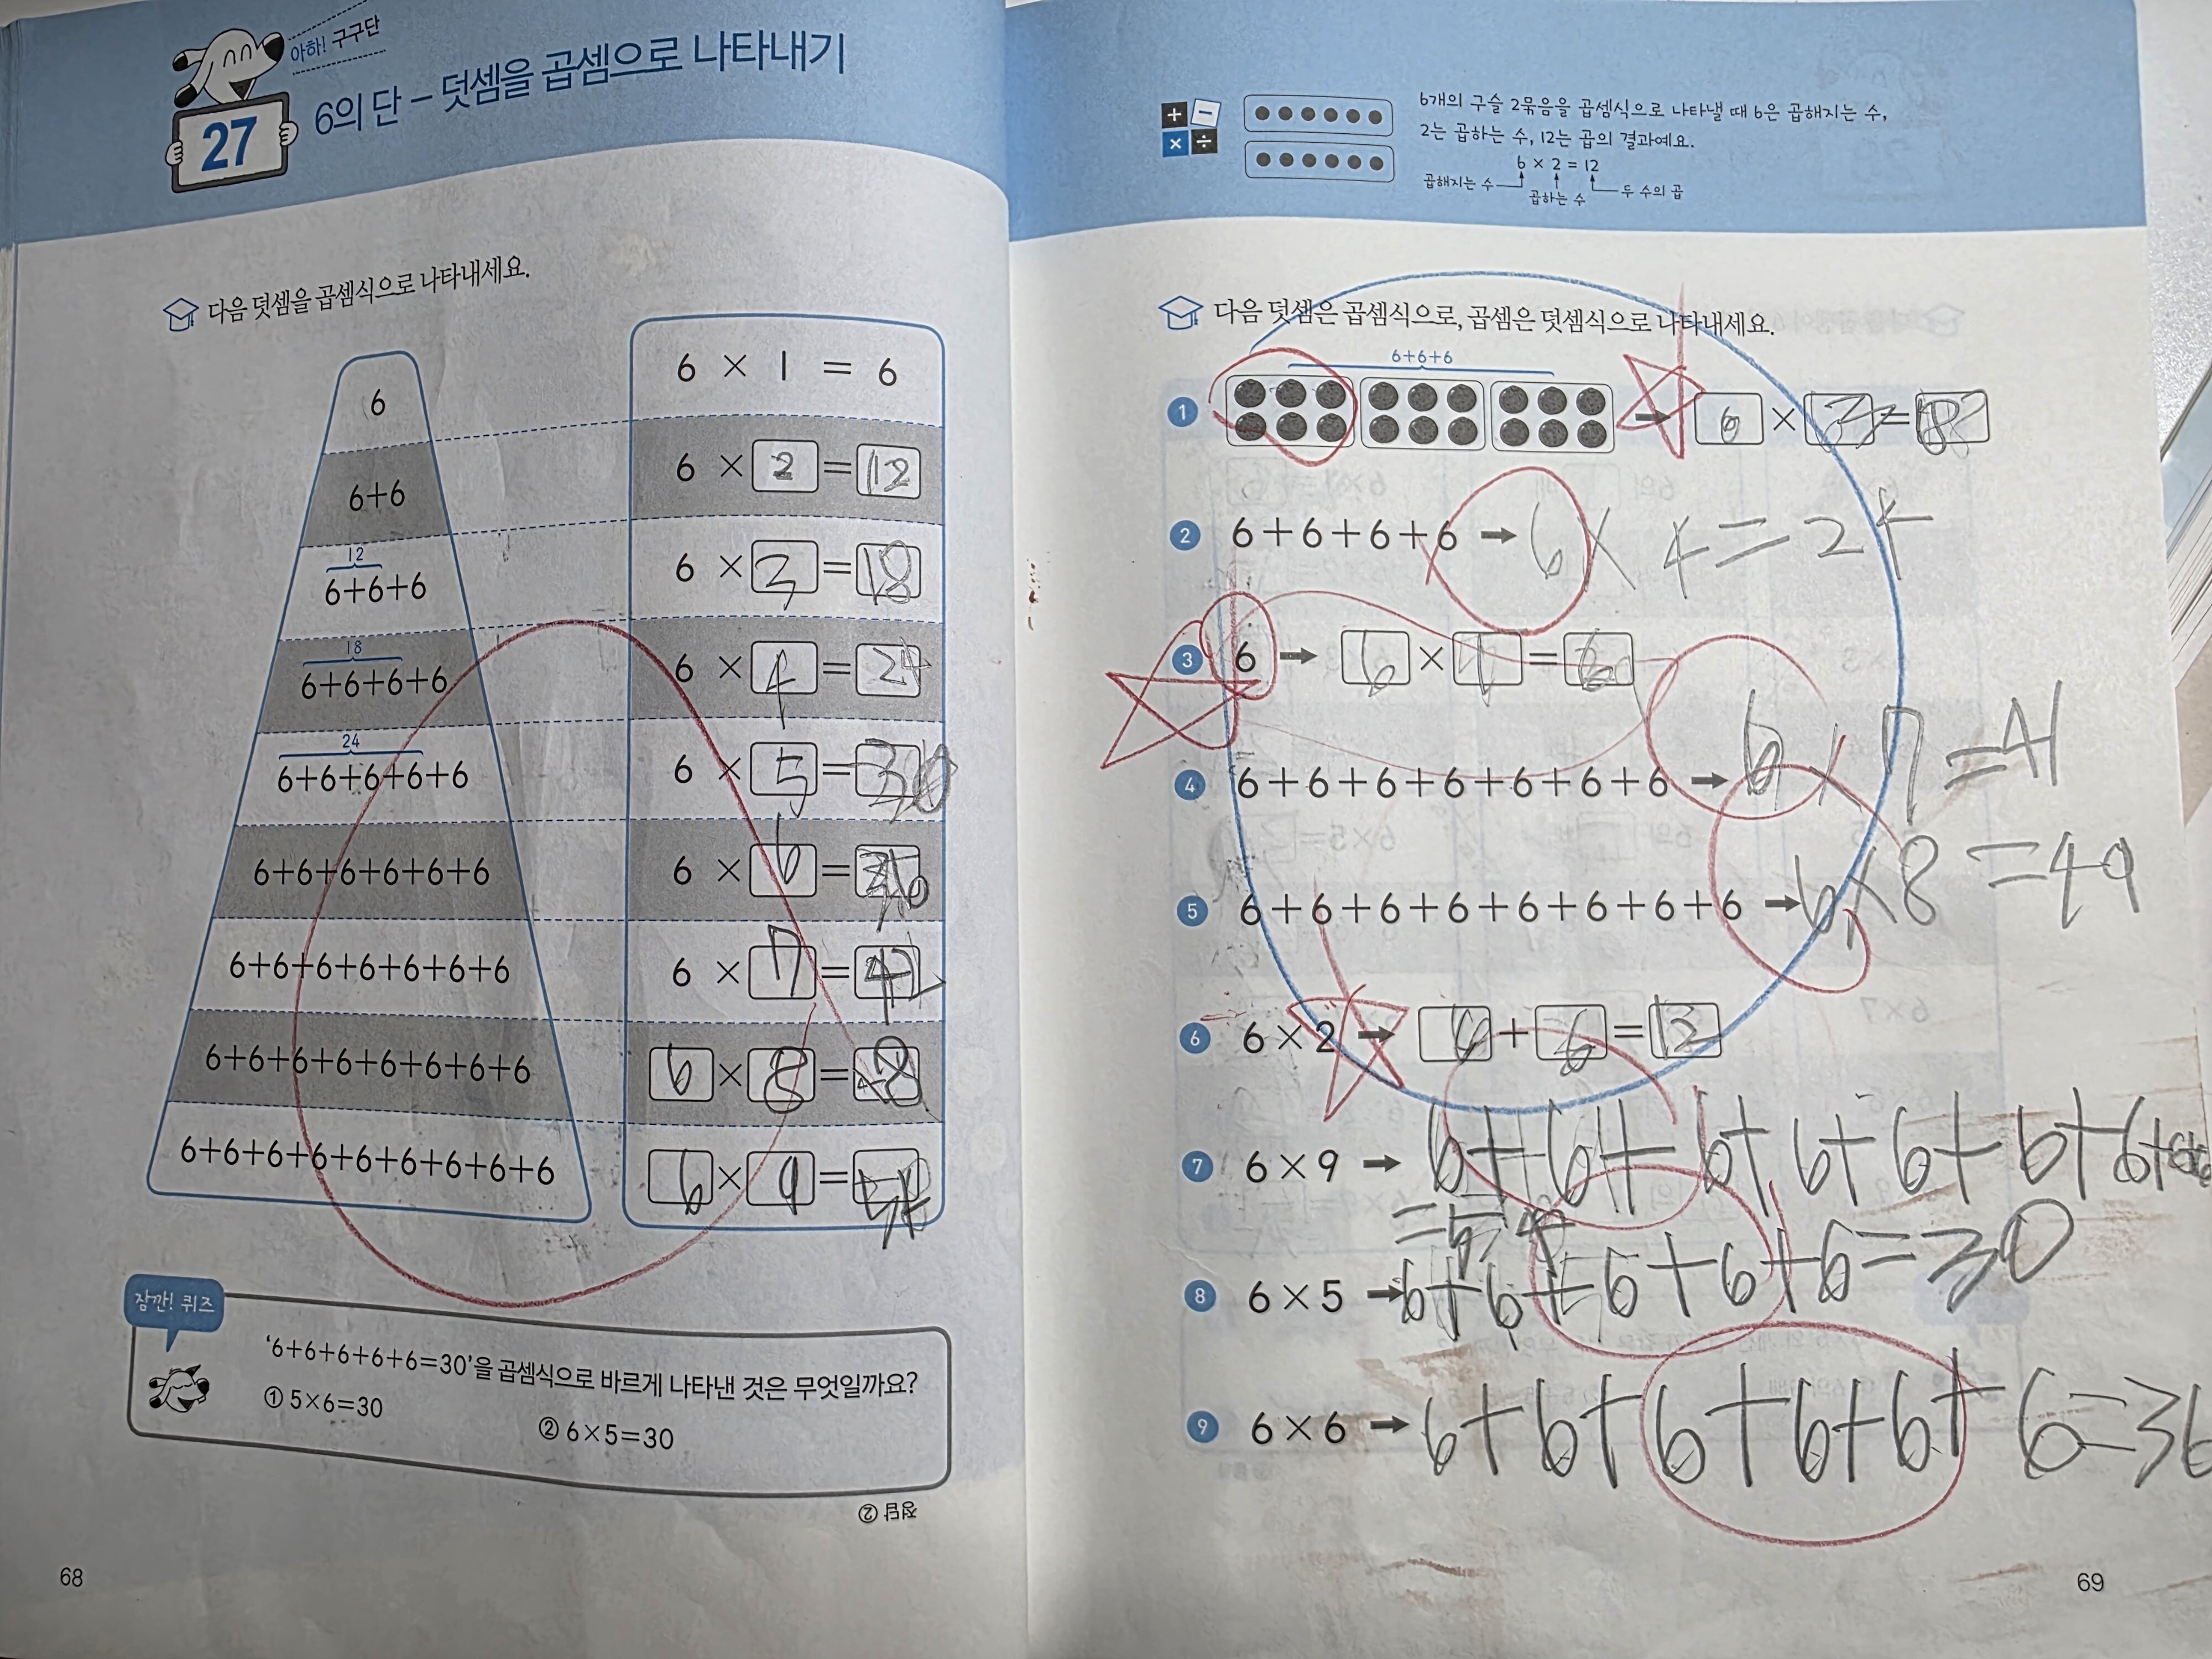 아하! 구구단
27
6의 단 – 덧셈을 곱셈으로 나타내기
다음 덧셈을 곱셈식으로 나타내세요.
6
6 × 1 = 6
6+6
6 × 2 = 12
12
6+6+6
6 × 3 = 18
18
6+6+6+6
6 × 4 = 24
24
6+6+6+6+6
6 × 5 = 30
6+6+6+6+6+6
6 × 6 = 36
6+6+6+6+6+6+6
6 × 7 = 42
6+6+6+6+6+6+6+6
6 × 8 = 48
6+6+6+6+6+6+6+6+6
6 × 9 = 54
잠깐! 퀴즈
‘6+6+6+6+6=30’을 곱셈식으로 바르게 나타낸 것은 무엇일까요?
① 5×6=30
② 6×5=30
정답 ②
68
+ − × ÷
6개의 구슬 2묶음을 곱셈식으로 나타낼 때 6은 곱해지는 수,
2는 곱하는 수, 12는 곱의 결과예요.
6 × 2 = 12
곱해지는 수
곱하는 수
두 수의 곱
다음 덧셈은 곱셈식으로, 곱셈은 덧셈식으로 나타내세요.
6+6+6
1 → 6 × 3 = 18
2 6+6+6+6 → 6 × 4 = 24
3 6 → 6 × 1 = 6
4 6+6+6+6+6+6+6 → 6 × 7 = 41
5 6+6+6+6+6+6+6+6 → 6 × 8 = 49
6 6 × 2 → 6 + 6 = 12
7 6 × 9 → 6+6+6+6+6+6+6+6+6
= 54
8 6 × 5 → 6+6+6+6+6=30
9 6 × 6 → 6+6+6+6+6+6=36
69